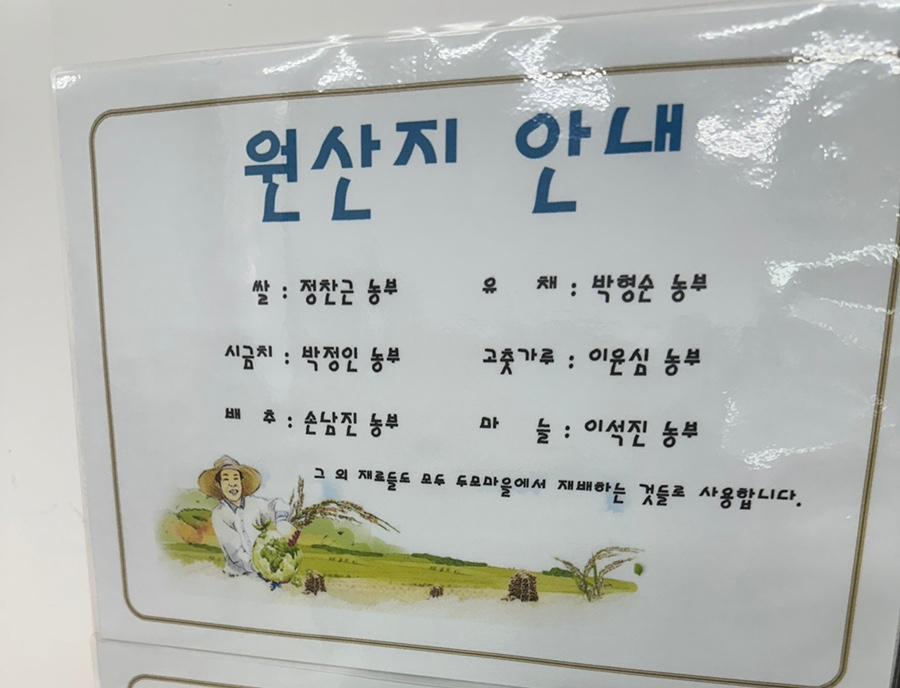 원산지 안내
쌀 : 정찬근 농부 유 채 : 박형순 농부
시금치 : 박정인 농부 고춧가루 : 이윤심 농부
배 추 : 손남진 농부 마 늘 : 이석진 농부
그 외 재료들도 모두 두모마을에서 재배하는 것들로 사용합니다.